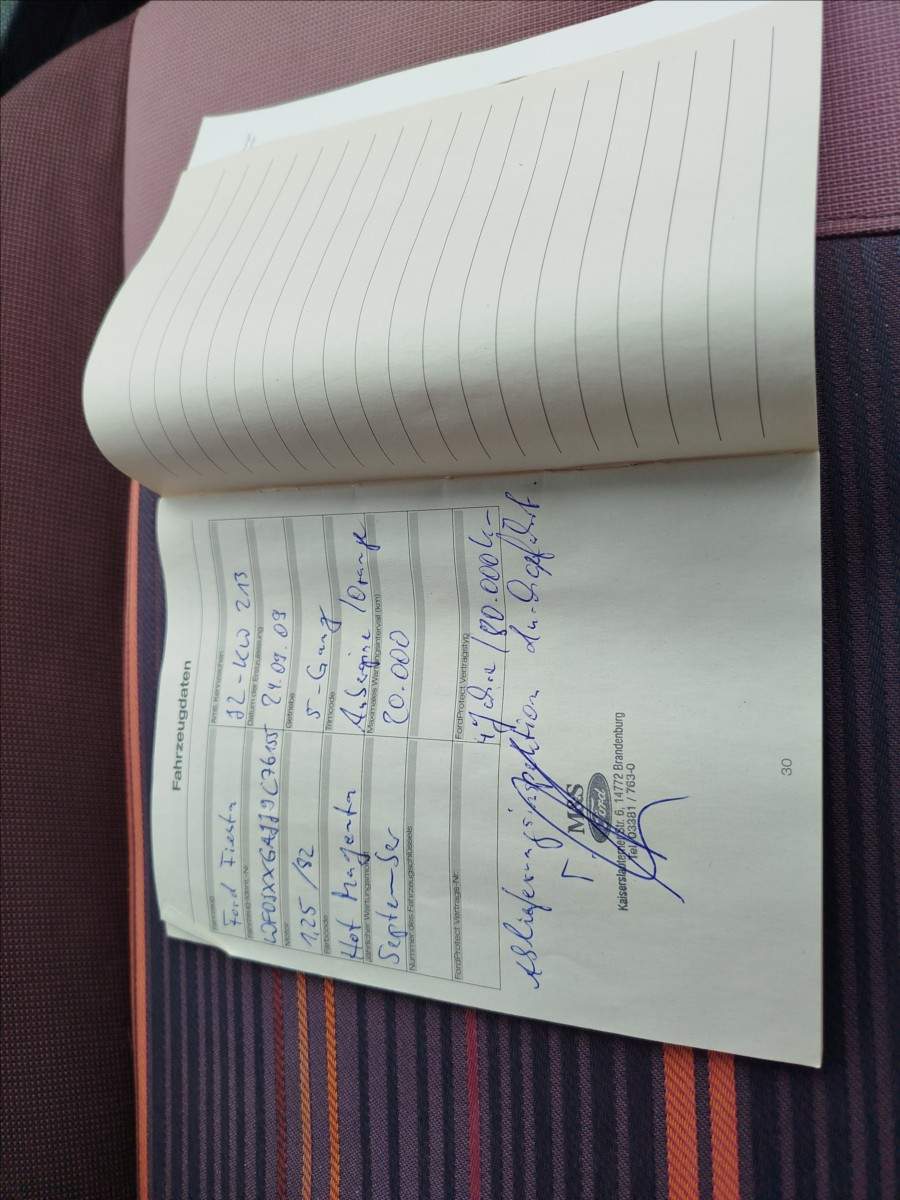 Fahrzeugdaten
Amtl. Kennzeichen
Ford Fiesta
JL-KW 213
Fahrzeug-Ident.-Nr.
Datum der Erstzulassung
WF0JXXGAJJ9C76155
24.09.09
Motor
Getriebe
1,25 / 82
5-Gang
Farbcode
Trimcode
Hot Magenta
Aubergine / Orange
Jährlicher Wartungsmonat
Maximales Wartungsintervall (km)
September
20.000
Nummer des Fahrzeugschlüssels
FordProtect Vertrags-Nr.
FordProtect Vertragstyp
4 Jahre / 80.000 km
Ablieferungsinspektion durchgeführt.
M&S
Ford
Kaiserslauterner Str. 6, 14772 Brandenburg
Tel. 03381 / 763-0
30